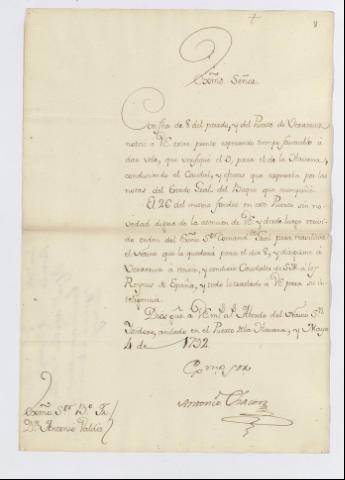 8
Exmo Señor
Con fha de 8 del pasado, y del Puerto de Veracruz
noticié a VE estar pronto esperando tiempo favorable a
dar vela, que verifiqué el 9, para el de la Havana,
conduciendo el Caudal, y efectos que
notas del Estado Gral. del Buque que acompaño.
El 26 del mismo fondeé en este Puerto sin no-
vedad digna de la atencion de VE y desde luego recivi
orden del Exmo Sor Comand.te Gral. para
el Navio que lo quedará para el dia 8, y
Veracruz a y conducir Caudales de S.M. a los
Reynos de España, y todo lo traslado a VE para su in-
teligencia.
Dios gue a VE ms as Abordo del Navio Sn
anclado en el Puerto dela Havana, y Mayo
4 de 1792
Exmo Sor
Antonio Chacon
Exmo Sor Bo Fr.
Dn Antonio Valdés